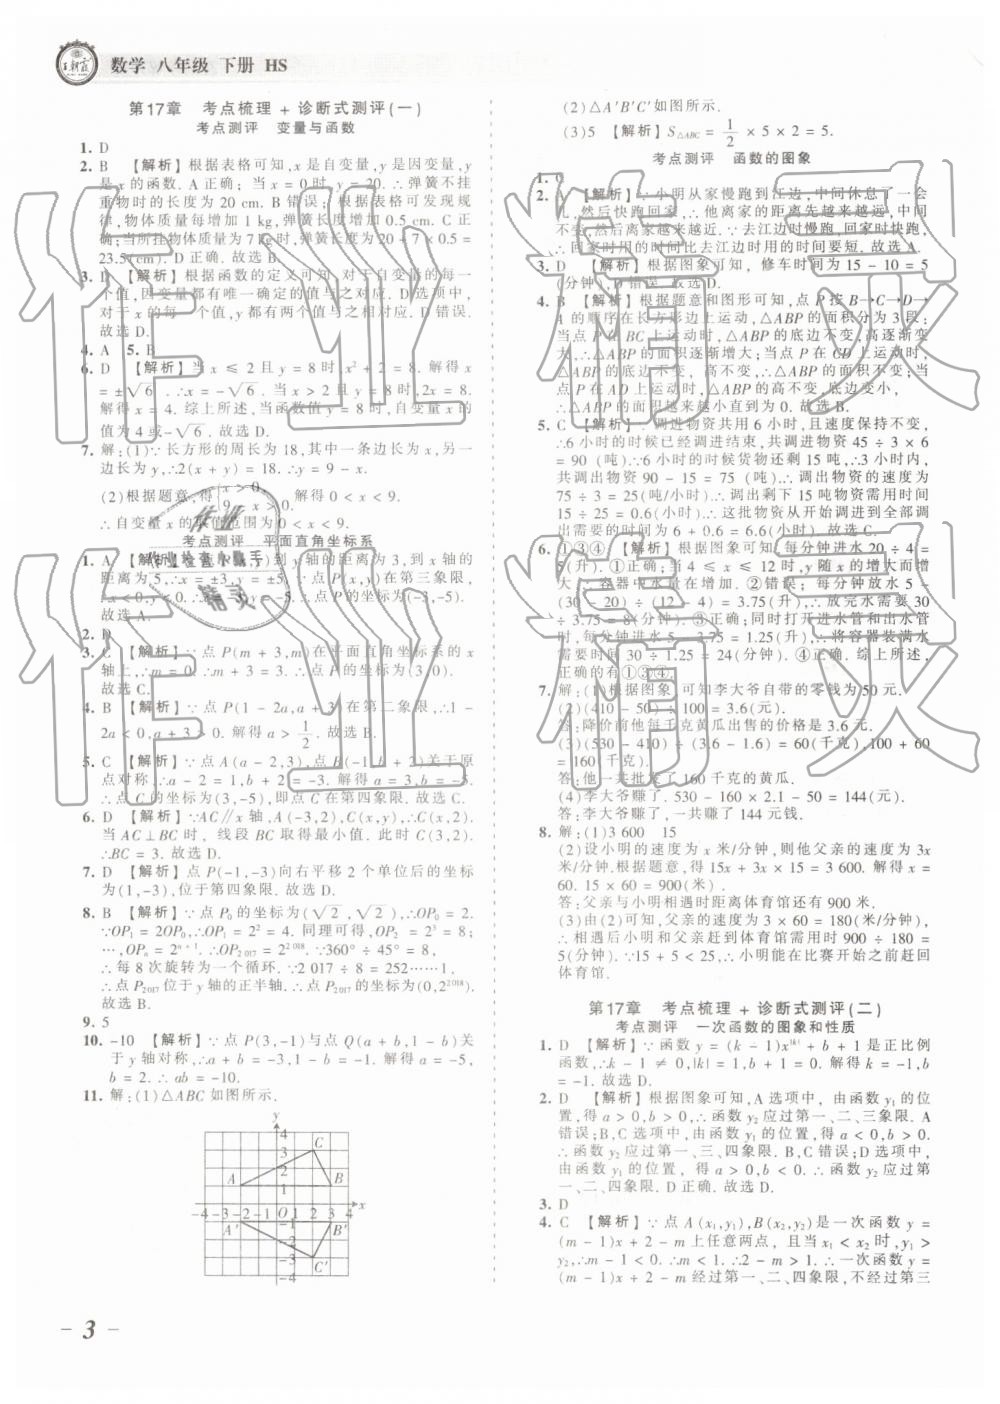 王朝霞
数学 八年级 下册 HS
第17章 考点梳理 + 诊断式测评(一)
考点测评 变量与函数
1. D
2. B 【解析】根据表格可知,x 是自变量,y 是因变量,y
是 x 的函数. A 正确; 当 x = 0 时,y = 20. ∴ 弹簧不挂
重物时的长度为 20 cm. B 错误; 根据表格可发现规
律,物体质量每增加 1 kg,弹簧长度增加 0.5 cm. C 正
确;当所挂物体质量为 7 kg,弹簧长度为 20 + 7 × 0.5 =
23.5(cm). D 正确. 故选 B.
3. D 【解析】根据函数的定义可知,对于自变量的每一
个值,因变量都有唯一确定的值与之对应. D 选项中,
对于 x 的每一个值,y 都有两个值与之相对应. D 错误.
故选 D.
4. A 5. B
6. D 【解析】当 x ≤ 2 且 y = 8 时,x² + 2 = 8. 解得 x
= ±√6. ∴x = -√6. 当 x > 2 且 y = 8 时,2x = 8.
解得 x = 4. 综上所述,当函数值 y = 8 时,自变量 x 的
值为 4 或 -√6. 故选 D.
7. 解:(1)∵ 长方形的周长为 18,其中一条边长为 x,另一
边长为 y,∴2(x + y) = 18. ∴y = 9 - x.
(2)根据题意,得 { x > 0, 9 - x > 0. 解得 0 < x < 9.
∴ 自变量 x 的取值范围为 0 < x < 9.
考点测评 平面直角坐标系
1. A 【解析】
到 y 轴的距离为 3,到 x 轴的
距离为 5,∴x = ±3,y = ±5. ∵ 点 P 在第三象限,
∴x < 0,y < 0. ∴ 点 P 的坐标为(-3,-5).
故选 A.
2. D
3. C 【解析】∵ 点 P(m + 3,m)在平面直角坐标系的 x
轴上,∴m = 0. ∴m + 3 = 3. ∴ 点 P 的坐标为(3,0).
故选 C.
4. B 【解析】∵ 点 P(1 - 2a,a + 3)在第二象限,∴1 -
2a < 0,a + 3 > 0. 解得 a > 1/2. 故选 B.
5. C 【解析】∵ 点 A(a - 2,3),点 B(-1,b + 2)关于原
点对称,∴a - 2 = 1,b + 2 = -3. 解得 a = 3,b = -5.
∴ 点 C 的坐标为(3,-5),即点 C 在第四象限. 故选 C.
6. D 【解析】∵AC∥x 轴,A(-3,2),C(x,y),∴y = 2.
当 AC⊥BC 时, 线段 BC 取得最小值. 此时 C(3,2).
∴BC = 3. 故选 D.
7. D 【解析】点 P(-1,-3)向右平移 2 个单位后的坐标
为(1,-3),位于第四象限. 故选 D.
8. B 【解析】∵ 点 P₀ 的坐标为(√2,√2),∴OP₀ = 2.
∵OP₁ = 2OP₀,∴OP₁ = 2² = 4. 同理可得,OP₂ = 2³ = 8;
…,OPₙ = 2ⁿ⁺¹. ∴OP₂₀₁₇ = 2²⁰¹⁸. ∵360° ÷ 45° = 8,
∴ 每 8 次旋转为一个循环. ∵2 017 ÷ 8 = 252……1,
∴ 点 P₂₀₁₇位于 y 轴的正半轴. ∴ 点 P₂₀₁₇的坐标为(0,2²⁰¹⁸).
故选 B.
9. 5
10. -10 【解析】∵ 点 P(3,-1)与点 Q(a + b,1 - b)关
于 y 轴对称,∴a + b = -3,1 - b = -1. 解得 a = -5,
b = 2. ∴ab = -10.
11. 解:(1)△ABC 如图所示.
y
4
3
2
1
C
A
B
-4 -3 -2 -1 O 1 2 3 4 x
A′
B′
C′
-4
(2)△A′B′C′如图所示.
(3)5 【解析】S△ABC = 1/2 × 5 × 2 = 5.
考点测评 函数的图象
1. C
2. A 【解析】∵ 小明从家慢跑到江边,中间休息了一会
儿,然后快跑回家,∴ 他离家的距离先越来越远,中间
不变,然后离家越来越近. ∵ 去江边时慢跑,回家时快跑,
∴ 回家时用的时间比去江边时用的时间要短. 故选 A.
3. D 【解析】根据图象可知, 修车时间为 15 - 10 = 5
(分钟),D 错误. 故选 D.
4. B 【解析】根据题意和图形可知,点 P 按 B→C→D→
A 的顺序在长方形边上运动,△ABP 的面积分为 3 段;
当点 P 在 BC 上运动时,△ABP 的底边不变,高逐渐变
大,∴△ABP 的面积逐渐增大; 当点 P 在 CD 上运动时,
△ABP 的底边不变, 高不变,∴△ABP 的面积不变;当
点 P 在 AD 上运动时,△ABP 的高不变,底边变小,
∴△ABP 的面积越来越小直到为 0. 故选 B.
5. C 【解析】∵ 调进物资共用 6 小时,且速度保持不变,
∴6 小时的时候已经调进结束,共调进物资 45 ÷ 3 × 6
= 90 (吨). ∵6 小时的时候货物还剩 15 吨,∴3 小时内,
共调出物资 90 - 15 = 75 (吨). ∴ 调出物资的速度为
75 ÷ 3 = 25(吨/时). ∴ 调出剩下 15 吨物资需用时间
15 ÷ 25 = 0.6(小时). ∴ 这批物资从开始调进到全部调
出需要的时间为 6 + 0.6 = 6.6(小时). 故选 C.
6. ①③④ 【解析】根据图象可知,每分钟进水 20 ÷ 4 =
5(升). ①正确; 当 4 ≤ x ≤ 12 时,y 随 x 的增大而增
大,∴ 容器中水量在增加. ②错误; 每分钟放水 5 -
(30 - 20) ÷ (12 - 4) = 3.75(升),∴ 放完水需要 30
÷ 3.75 = 8(分钟). ③正确;同时打开进水管和出水管
时,每分钟进水 5 - 3.75 = 1.25(升),∴ 将容器装满水
需要时间 30 ÷ 1.25 = 24(分钟). ④正确. 综上所述,
正确的有①③④.
7. 解:(1)根据图象,可知李大爷自带的零钱为 50 元.
(2)(410 - 50) ÷ 100 = 3.6(元).
答:降价前他每千克黄瓜出售的价格是 3.6 元.
(3)(530 - 410) ÷ (3.6 - 1.6) = 60(千克),100 + 60
= 160(千克).
答:他一共批发了 160 千克的黄瓜.
(4)李大爷赚了. 530 - 160 × 2.1 - 50 = 144(元).
答:李大爷赚了,一共赚了 144 元钱.
8. 解:(1)3 600 15
(2)设小明的速度为 x 米/分钟,则他父亲的速度为 3x
米/分钟.根据题意,得 15x + 3x × 15 = 3 600. 解得 x =
60. ∴15x = 60 × 15 = 900(米).
答:父亲与小明相遇时距离体育馆还有 900 米.
(3)由(2)可知,父亲的速度为 3 × 60 = 180(米/分钟),
∴ 相遇后小明和父亲赶到体育馆需用时 900 ÷ 180 =
5(分钟). ∵15 + 5 < 25,∴小明能在比赛开始之前赶回
体育馆.
第17章 考点梳理 + 诊断式测评(二)
考点测评 一次函数的图象和性质
1. D 【解析】∵ 函数 y = (k - 1)x^|k| + b + 1 是正比例
函数,∴k - 1 ≠ 0,|k| = 1,b + 1 = 0. 解得 k = -1,b
= -1. 故选 D.
2. D 【解析】根据图象可知,A 选项中, 由函数 y₁ 的位
置,得 a > 0,b > 0,∴ 函数 y₂ 应过第一、二、三象限. A
错误;B、C 选项中,由函数 y₁ 的位置,得 a < 0,b > 0,
∴ 函数 y₂ 应过第一、三、四象限. B、C 错误;D 选项中,
由函数 y₁ 的位置, 得 a > 0,b < 0,∴ 函数 y₂ 应过第
一、二、四象限. D 正确. 故选 D.
3. D
4. C 【解析】∵ 点 A(x₁,y₁),B(x₂,y₂)是一次函数 y =
(m - 1)x + 2 - m 上任意两点, 且当 x₁ < x₂ 时,y₁ >
y₂,∴m - 1 < 0. ∴m < 1. ∴2 - m > 1. ∴ 一次函数 y =
(m - 1)x + 2 - m 经过第一、二、四象限,不经过第三
- 3 -
作业精灵
作业精灵
作业检查小助手
精灵